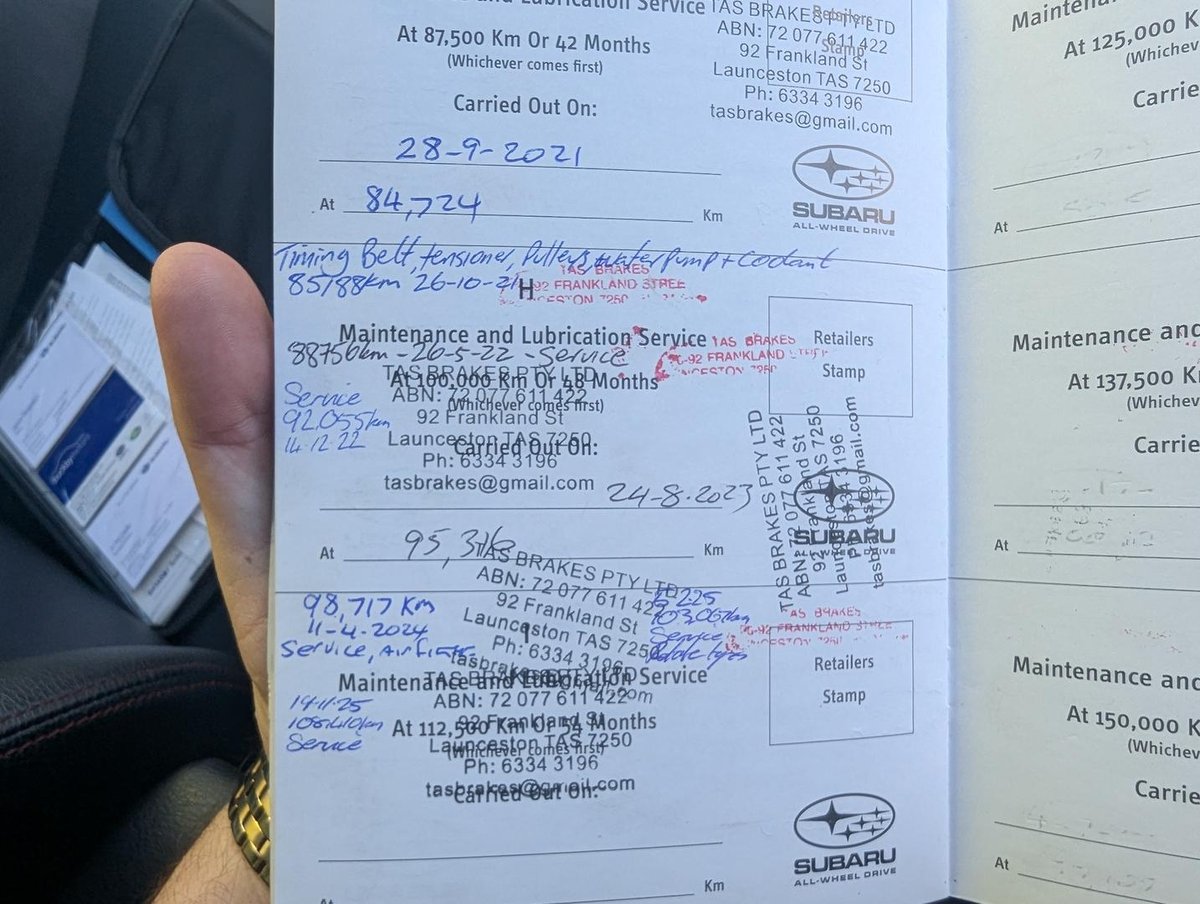 and Lubrication Service
TAS BRAKES PTY LTD
Retailers
ABN: 72 077 611 422
Stamp
92 Frankland St
Launceston TAS 7250
Ph: 6334 3196
tasbrakes@gmail.com
At 87,500 Km Or 42 Months
(Whichever comes first)
Carried Out On:
28-9-2021
At 84,724 Km
SUBARU
ALL-WHEEL DRIVE
Timing Belt, tensioner, Pulleys, water pump + coolant
85188km 26-10-21
TAS BRAKES
92 FRANKLAND STREE
CESTON 7250
H
Maintenance and Lubrication Service
88756km - 26-5-22 - Service
TAS BRAKES
-92 FRANKLAND
NCESTON 7250
Retailers
Stamp
TAS BRAKES PTY LTD
At 100,000 Km Or 48 Months
ABN: 72 077 611 422
(Whichever comes first)
92 Frankland St
Launceston TAS 7250
Carried Out On:
Ph: 6334 3196
tasbrakes@gmail.com
Service
92,055km
14.12.22
24-8-2023
TAS BRAKES PTY LTD
ABN: 72 077 611 422
92 Frankland St
Launceston TAS 7250
Ph: 6334 3196
tasbrakes@gmail.com
SUBARU
ALL-WHEEL DRIVE
At 95,316 Km
98,717 Km
11-4-2024
Service, Airfilter
TAS BRAKES PTY LTD
ABN: 72 077 611 422
92 Frankland St
Launceston TAS 7250
Ph: 6334 3196
tasbrakes@gmail.com
I
225
103,067km
Service
Rotate tyres
AS BRAKES
-92 FRANKLAND STREE
NCESTON 7250
Retailers
Stamp
Maintenance and Lubrication Service
TAS BRAKES PTY LTD
ABN: 72 077 611 422
At 112,500 Km Or 54 Months
92 Frankland St
Launceston TAS 7250
(Whichever comes first)
Ph: 6334 3196
tasbrakes@gmail.com
Carried Out On:
Service
SUBARU
ALL-WHEEL DRIVE
Km
At
Maintenan
At 125,000 K
(Whichev
Carrie
At
Maintenance and
At 137,500 K
(Whichev
Carrie
At
Maintenance and
At 150,000 K
(Whichev
Carrie
At